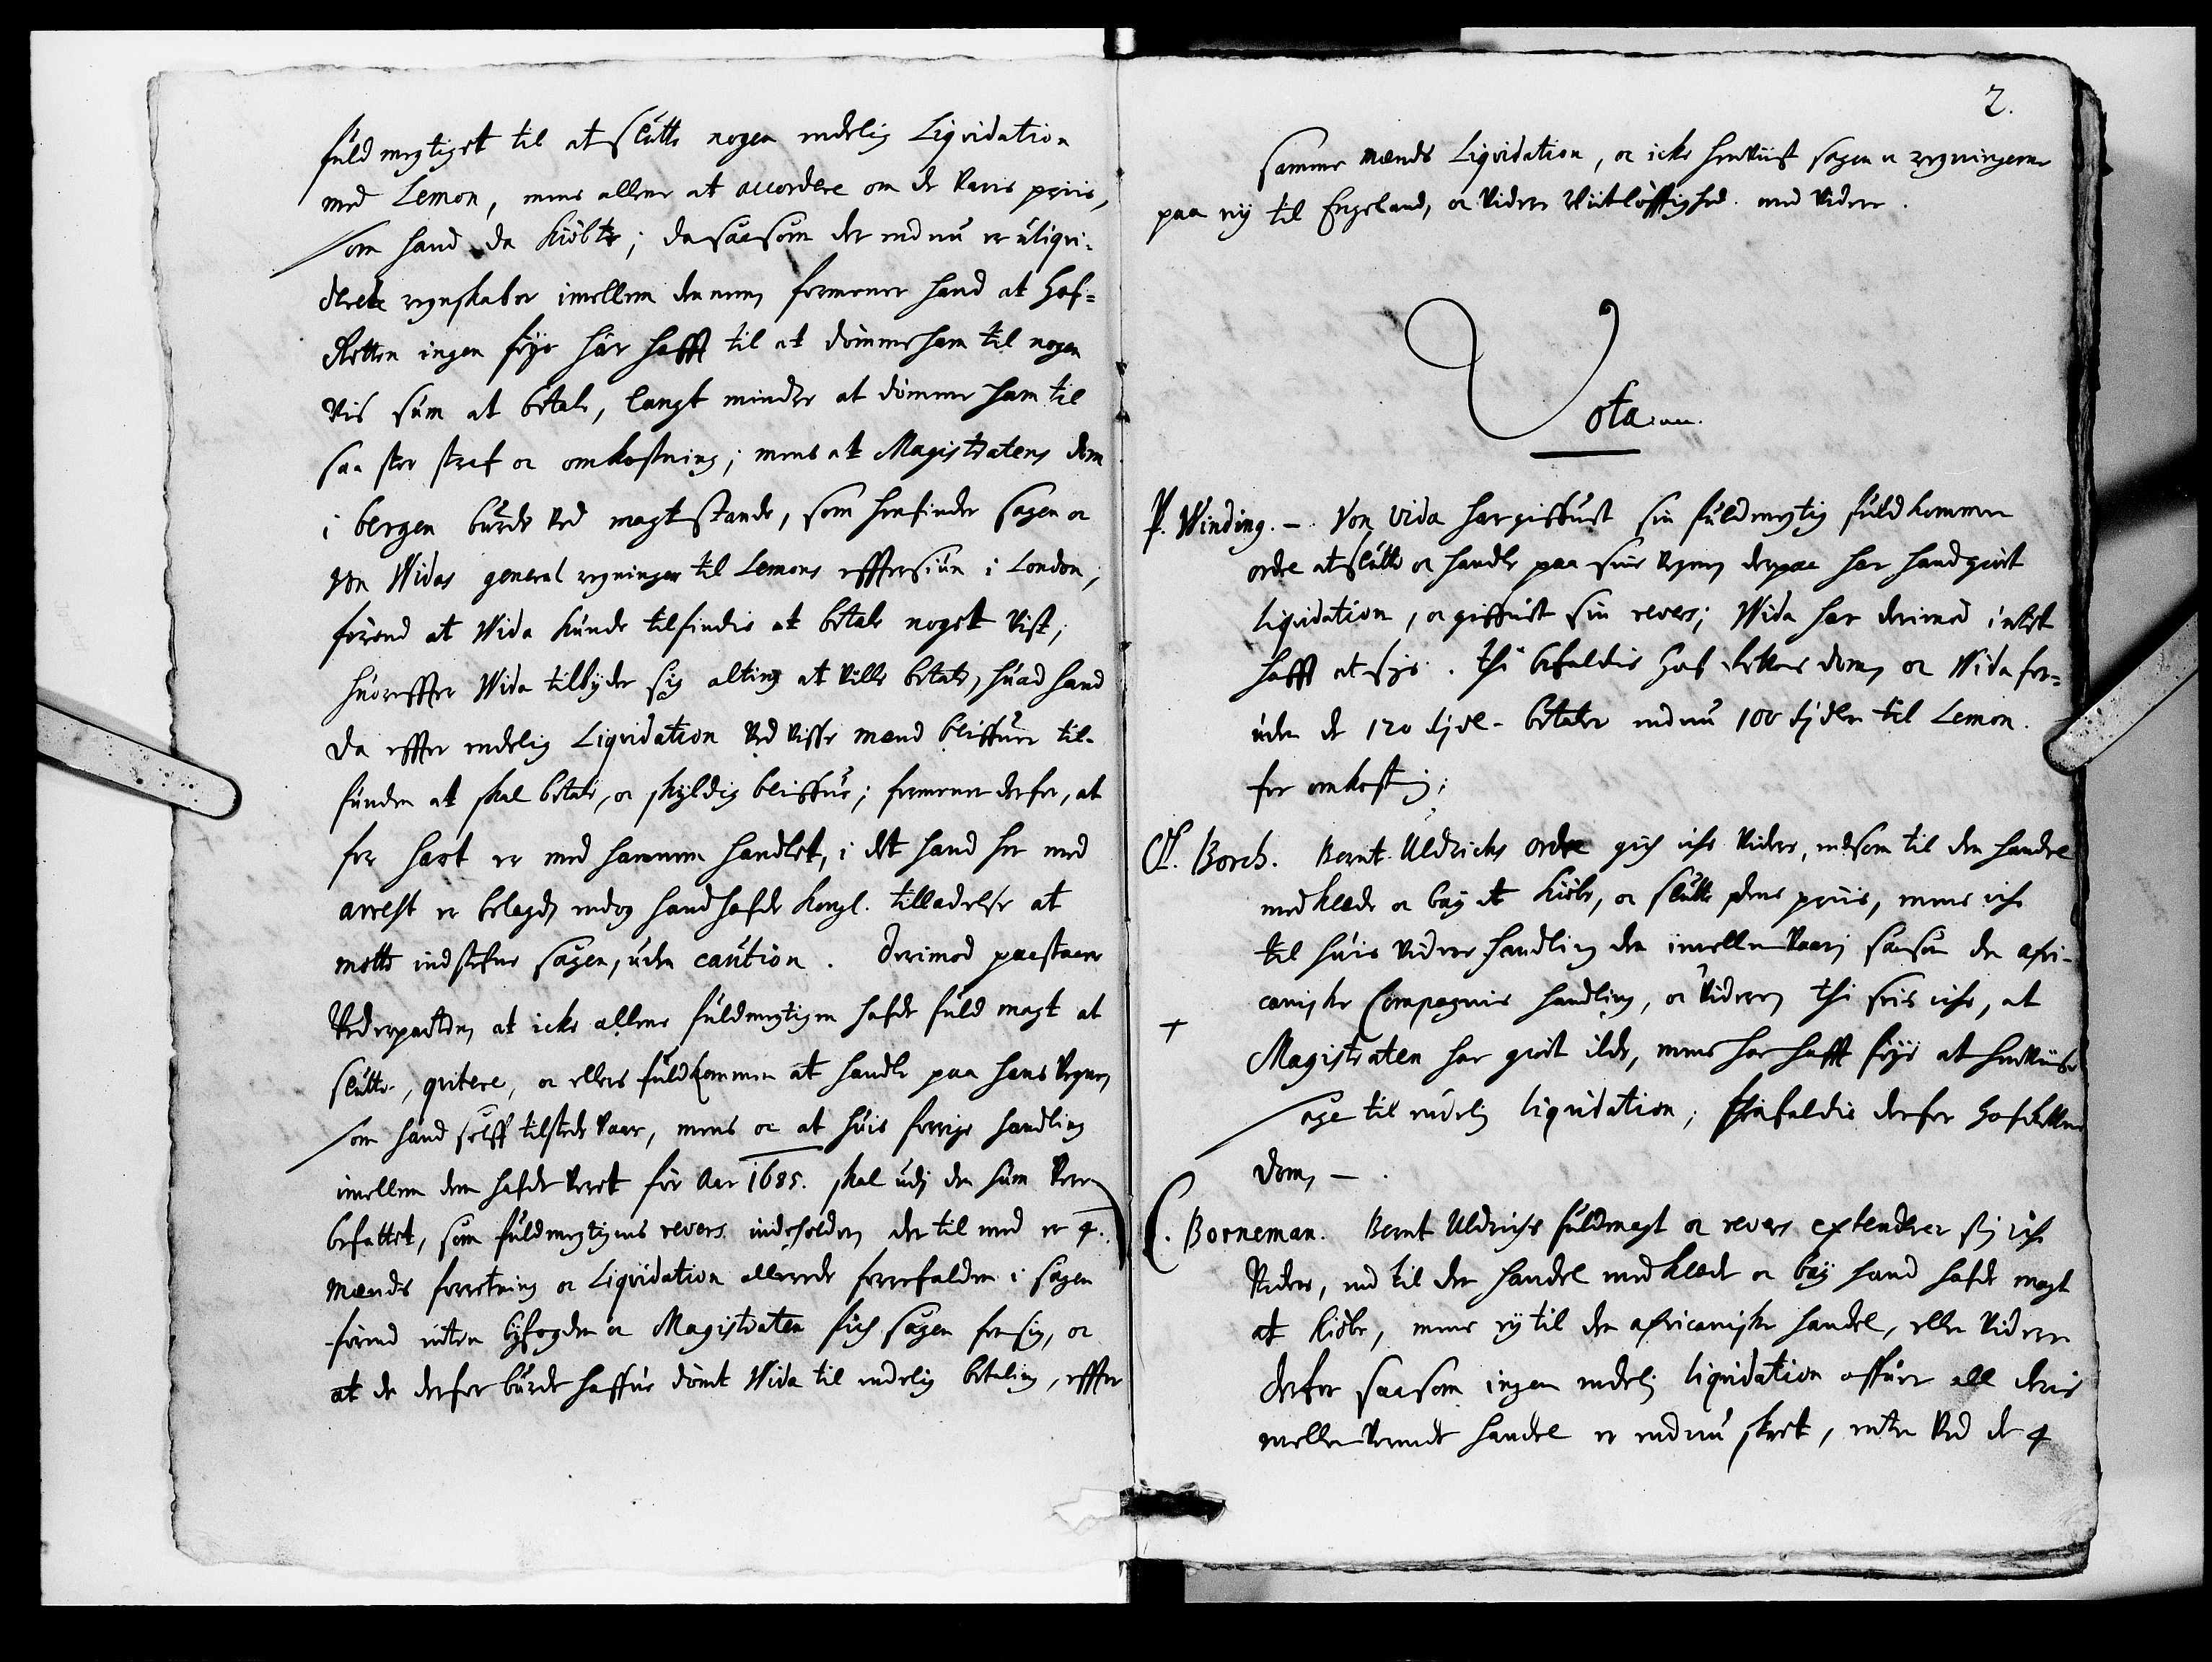 fuldmegtiget til at slutte nogen endelig Liqvidation
med Lemon, mens allene at accordere om de Varis priis,
som hand da kiøbte; da saasom der endnu er uliqvi-
derete regnskaber imellem dennem, formener hand at Hof-
Retten ingen føye har hafft til at dømme ham til nogen
Vis sum at betale, langt mindre at dømme ham til
saa stor straf oc omkostning; mens at Magistratens dom
i bergen burde ved magt stande, som henfinder sagen oc
von Widas general regninger til Lemons effterSiun i London,
førend at Wida kunde tilfindis at betale noget vist;
huoreffter Wida tilbyder sig alting at ville betale, huad hand
da effter endelig Liqvidation ved visse mænd bliffuer til-
funden at skal betale, oc skyldig bliffue; formener derfor, at
for hart er med hannem handlet, i det hand her med
arrest er belagd, endog hand hafde kongl. tilladelse at
motte indstefne sagen, uden caution. Derimod paastaaer
Vederparten, at icke allene fuldmegtigen hafde fuld magt at
slutte, qvitere, oc ellers fuldkommen at handle paa hans vegne,
som hand self tilstede Vaar, mens oc at huis forrige handling
imellem dem hafde veret før Aar 1685. skal udj den sum vere
befattet, som fuldmegtigens revers indeholder, der til med er 4.
Mænds forretning oc Liqvidation allerede forrefalden i sagen
førend enten byfogden oc Magistraten fich sagen for sig, oc
at de derfor burde haffue dømt Wida til endelig betaling, effter
2.
samme mænds Liqvidation, oc icke henviist sagen oc regningerne
paa ny til Engeland, oc videre Viitløfftighed. med videre.
Vota:
P. Winding. - Von Vida har giffuet sin fuldmegtig fuldkommen
ordre at slutte oc handle paa sine vegne, derpaa har hand giort
liqvidation, oc giffuet sin revers; Wida har derimod intet
hafft at sige. Thi befaldis Hof Rettens dom, oc Wida for-
uden de 120 betaler endnu 100 til Lemon.
for omkostning;
Ol. Borch. Bernt Uldrichs ordre gich icke videre, end som til den handel
med klæde oc bay at kiøbe, oc slutte dens priis, mens icke
til huis videre handling der imellem Vaar, saasom den afri-
caniske Compagnies handling, oc videre, thi sees icke, at
+
Magistraten har giort ilde, mens har hafft føye at henviise
sage til endelig liqvidation; derfor Hofrettens
dom, -.
C. Borneman. Bernt Uldrichs fuldmagt oc revers extenderer sig icke
videre, end til den handel med klæde oc bay hand hafde magt
at kiøbe, mens ey til den africaniske handel, eller videre
derfor saasom ingen endelig liqvidation offuer all deris
mellem verende handel er endnu skeet, enten ved de 4